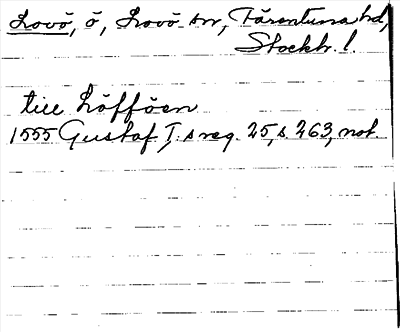 Lovö, ö, Lovö sn, Färentuna hd,
Stockh. l.
till Löfföen
1555 Gustaf I:s reg. 25, s. 263, not.